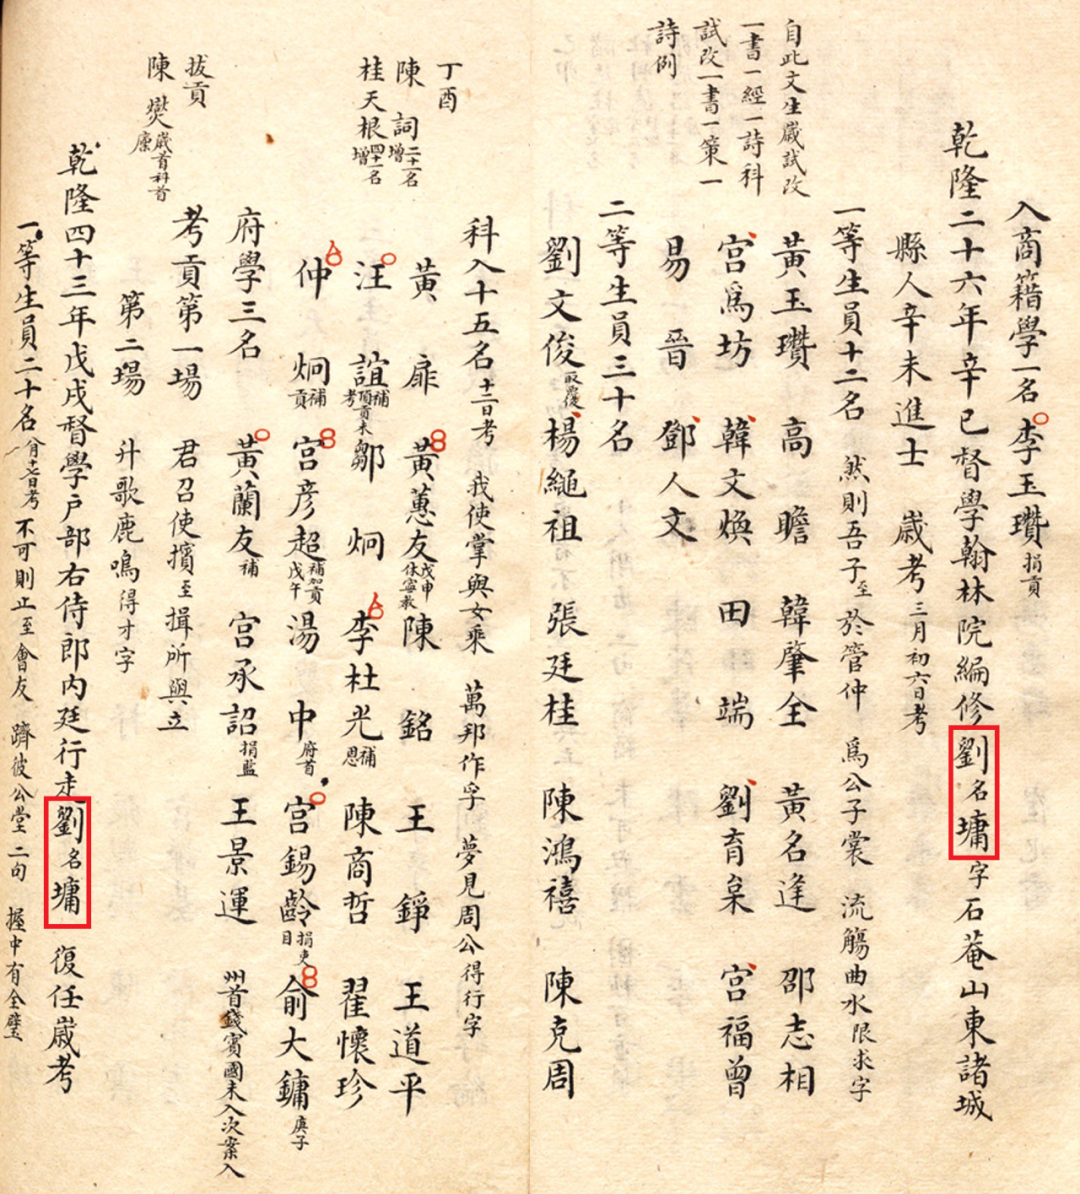 入商籍學一名 李玉瓚捐貢
乾隆二十六年辛巳督學翰林院編修劉名墉字石菴山東諸城
縣人辛未進士 歲考三月初六日考
一等生員十二名 然則吾子至於管仲 為公子裳 流觴曲水限求字
自此文生歲試改
一書一經一詩科
試改一書一策一
詩例
黃玉瓚 高瞻 韓肇全 黃名逢 邵志相
宮為坊 韓文煥 田端 劉育枲 宮福曾
易晉 鄧人文
二等生員三十名
劉文俊取覆 楊繩祖 張廷桂 陳鴻禧 陳克周
科入十五名十二日考 我使掌與女乘 萬邦作孚 夢見周公得行字
丁酉
陳詞二十一名增
桂天根四十一名增
黃扉 黃蕙友戊申休寧教 陳銘 王錚 王道平
汪誼補項貢未考 鄒炯 李杜光補恩 陳商哲 翟懷珍
仲炯補貢 宮彥超補加貢戊午 湯中府首 宮錫齡捐吏目 俞大鏞庚子
府學三名 黃蘭友補 宮承詔捐監 王景運 州首錢賓國未入次案入
拔貢
陳爕歲首科首廩
考貢第一場 君召使擯至揖所與立
第二場 升歌鹿鳴得才字
乾隆四十三年戊戌督學戶部右侍郎內廷行走劉名墉 復任歲考
一等生員二十名 不可則止至會友 躋彼公堂二句 握中有全璧